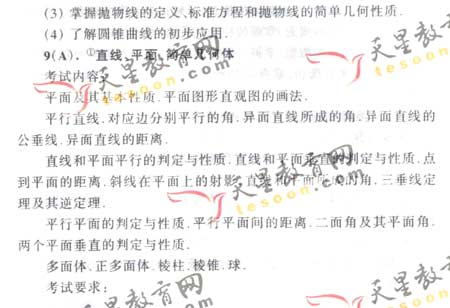 (3) 掌握抛物线的定义、标准方程和抛物线的简单几何性质.
(4) 了解圆锥曲线的初步应用.
9(A). ①直线、平面、简单几何体
考试内容:
平面及其基本性质. 平面图形直观图的画法.
平行直线. 对应边分别平行的角. 异面直线所成的角. 异面直线的
公垂线. 异面直线的距离.
直线和平面平行的判定与性质. 直线和平面垂直的判定与性质. 点
到平面的距离. 斜线在平面上的射影. 直线和平面所成的角. 三垂线定
理及其逆定理.
平行平面的判定与性质. 平行平面间的距离. 二面角及其平面角.
两个平面垂直的判定与性质.
多面体. 正多面体. 棱柱. 棱锥. 球.
考试要求:
天星教育网
tesoon.com
天星教育网
tesoon.com
天星教育网
tesoon.com
天星教育网
天星教育网